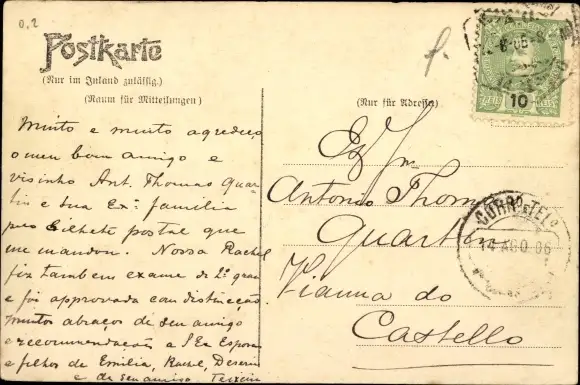 0,2
Postkarte
(Nur im Inland zulässig.)
(Raum für Mitteilungen)
Muito e muito agredeço
o meu bom amigo e
visinho Ant. Thomas Quar-
tin e sua Ex.ª familia
pelo Bilhete postal que
me mandou. Nossa Rachel
fez tambem exame de 2º grau
e foi approvada com distincção
Muitos abraços de seu amigo
e recommendação a S Ex Esposa
e filhos de Emilia, Rachel,
e de seu amigo Teixeira
(Nur für Adresse)
Ex Mº
Antonio Thomas
Quartin
Vianna do
Castello
10
CORRº E TELº
14 AGO 06